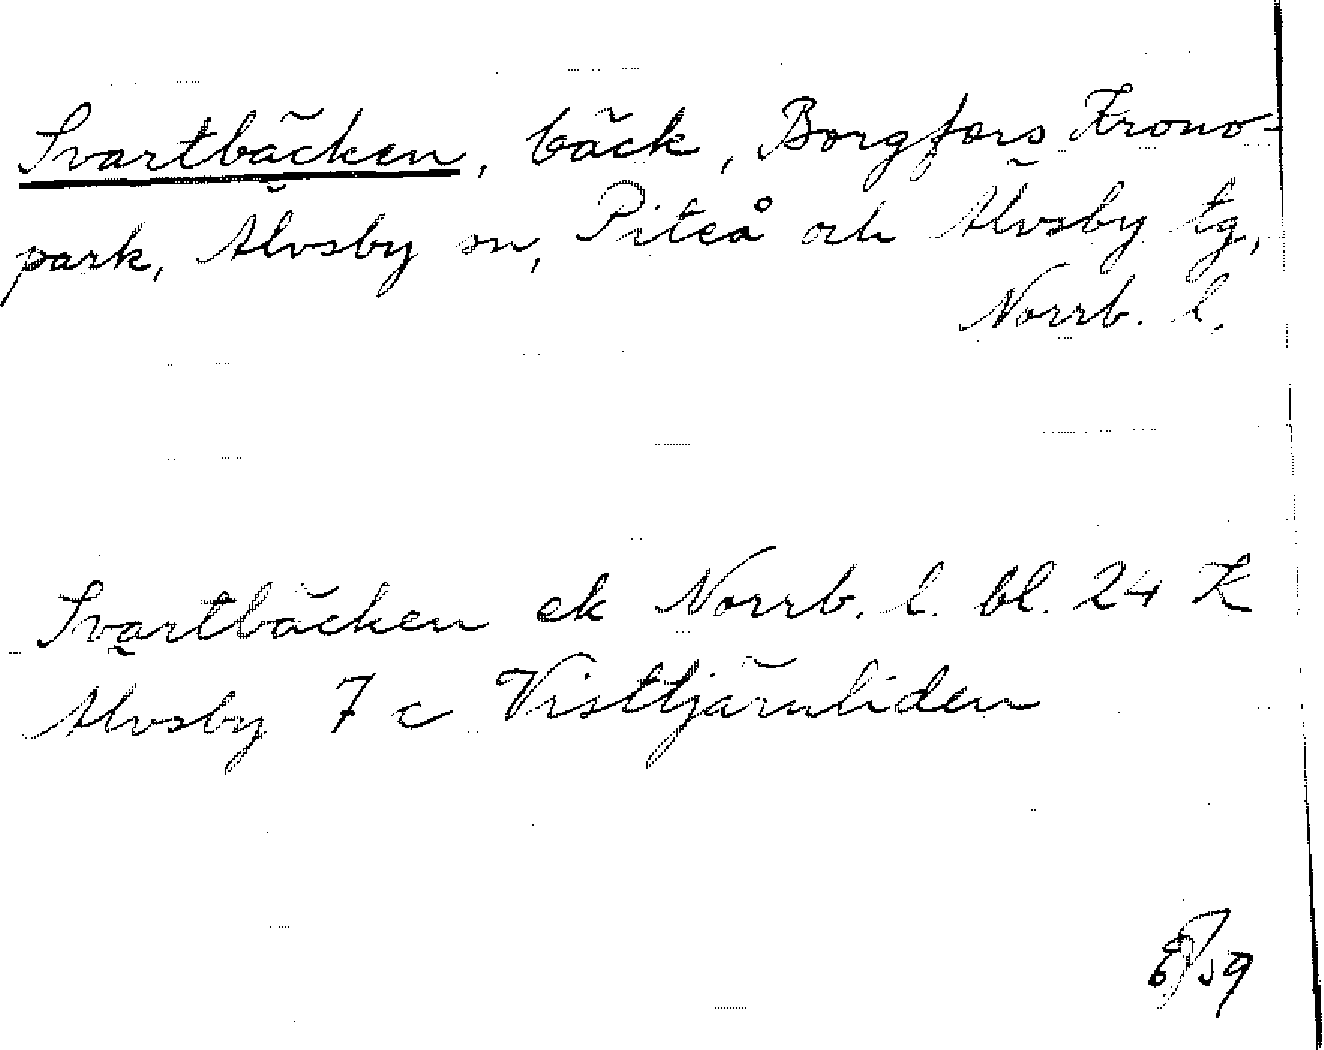 Svartbäcken, bäck, Borgfors Krono-
park, Älvsby sn, Piteå och Älvsby tg,
Norrb. l.
Svartbäcken ek Norrb. l. bl. 24 K
Älvsby 7 c Visttjärnliden